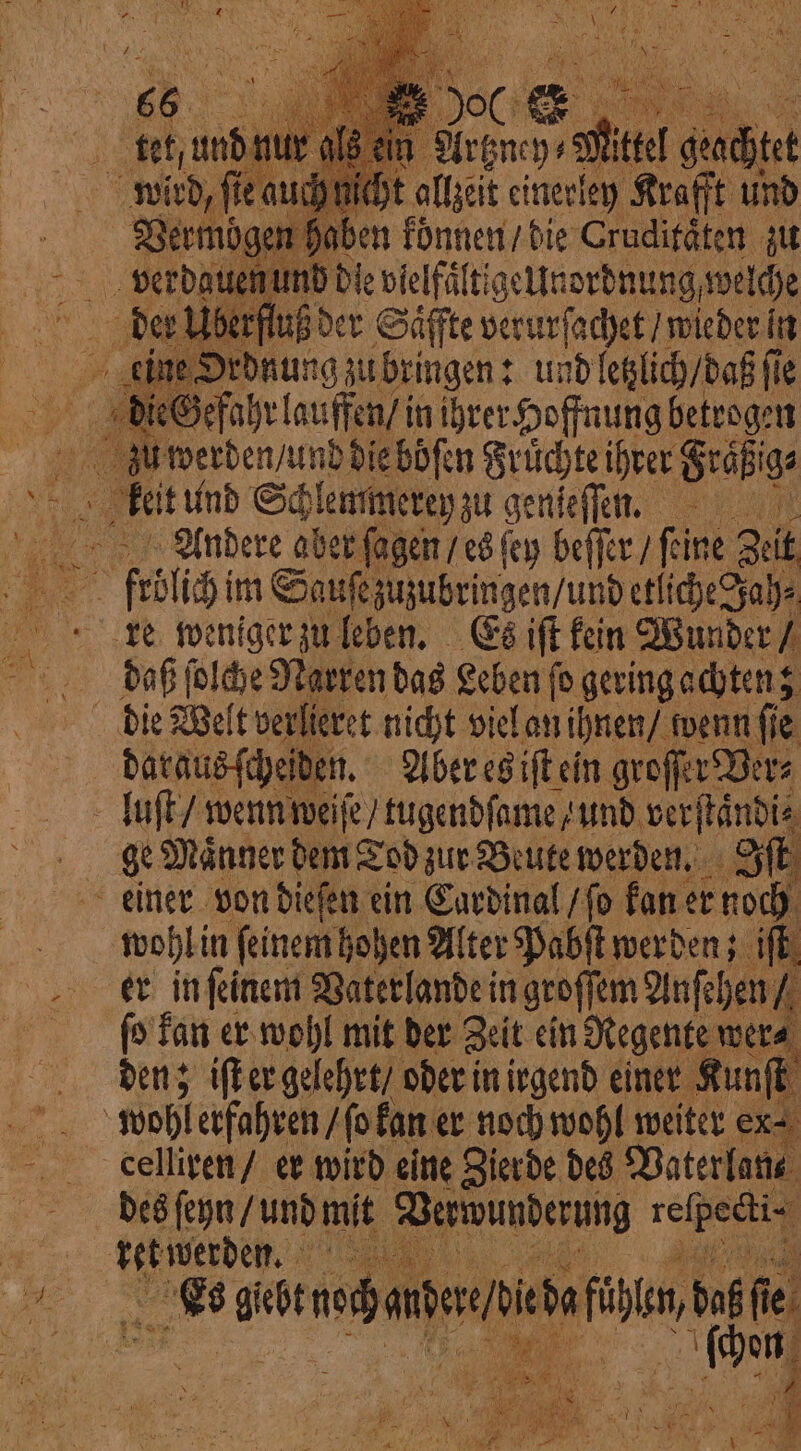 66 )o(
tet, und nur als ein Artzney⸗Mittel geachtet
wird, ſie auch nicht allzeit einerley Krafft und
Vermoͤgen haben koͤnnen / die Cruditaͤten zu
verdauen und die vielfaͤltige Unordnung, welche
der Uberfluß der Saͤffte verurſachet / wieder in
eine Ordnung zu bringen: und letzlich / daß ſie
die Gefahr lauffen / in ihrer Hoffnung betrogen
zu werden / und die boͤſen Fruͤchte ihrer Fraͤßig⸗
keit und Schlemmerey zu genieſſen.
Andere aber ſagen / es ſey beſſer / ſeine Zeit
froͤlich im Sauſe zuzubringen / und etliche Jah⸗
re weniger zu leben. Es iſt kein Wunder /
daß ſolche Narren das Leben ſo gering achten;
die Welt verlieret nicht viel an ihnen / wenn ſie
daraus ſcheiden. Aber es iſt ein groſſer Ver⸗
luſt / wenn weiſe / tugendſame / und verſtaͤndi⸗
ge Maͤnner dem Tod zur Beute werden. Iſt
einer von dieſen ein Cardinal / ſo kan er noch
wohl in ſeinem hohen Alter Pabſt werden; iſt
er in ſeinem Vaterlande in groſſem Anſehen /
ſo kan er wohl mit der Zeit ein Regente wer⸗
den; iſt er gelehrt / oder in irgend einer Kunſt
wohl erfahren / ſo kan er noch wohl weiter ex-
celliren / er wird eine Zierde des Vaterlan⸗
des ſeyn / und mit Verwunderung reſpecti-
ret werden.
Es giebt noch andere / die da fuͤhlen, daß ſie
ſchon